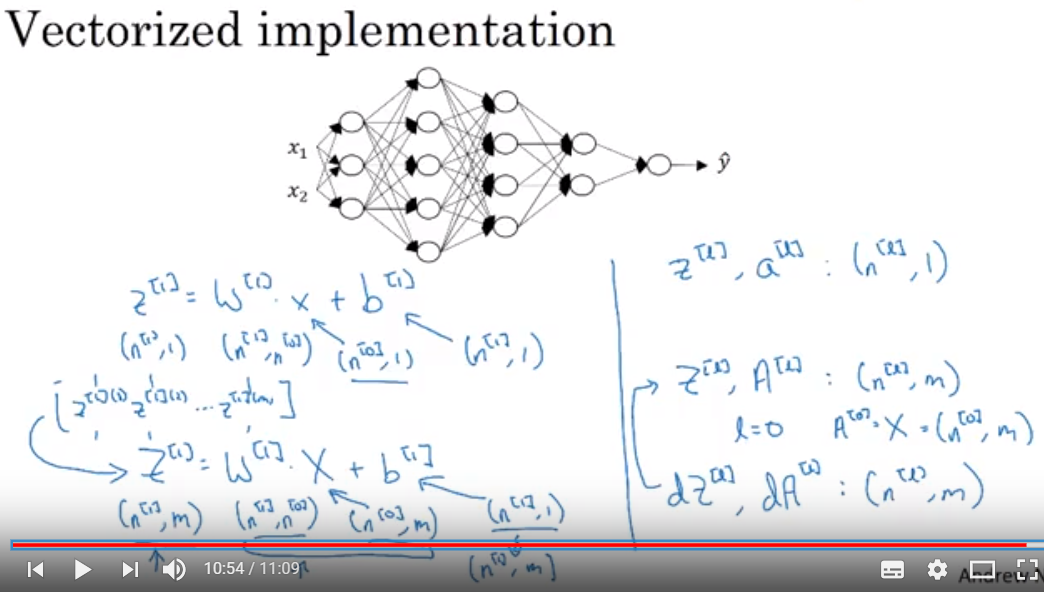 Vectorized implementation
x₁
x₂
ŷ
z^[1] = W^[1] · x + b^[1]
(n^[1],1) (n^[1],n^[0]) (n^[0],1) (n^[1],1)
[z^[1](1) z^[1](2) ... z^[1](m)]
Z^[1] = W^[1] · X + b^[1]
(n^[1],m) (n^[1],n^[0]) (n^[0],m) (n^[1],1)
(n^[1],m)
z^[l], a^[l] : (n^[l],1)
Z^[l], A^[l] : (n^[l],m)
l=0 A^[0]=X=(n^[0],m)
dZ^[l], dA^[l] : (n^[l],m)
10:54 / 11:09
Andrew N